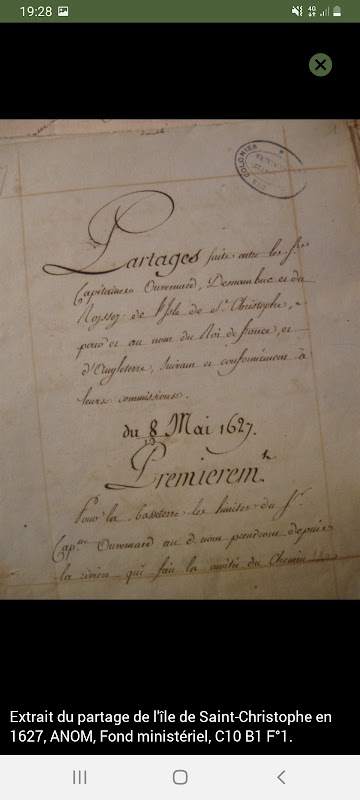 19:28
4G
COLONIES
Partages faits entre les srs
Capitaines Ouvernard, Denambuc et du
Roissez de l'Isle de St Christophe,
pour et au nom du Roi de france, et
d'Angleterre, suivant et conformément à
leurs commissions.
du 8 Mai 1627.
13
Premieremt
Pr la basseterre les limites du sr
Capne Ouvernard au d. nom prendront depuis
la riviere qui fait la moitié du Chemin
Extrait du partage de l'île de Saint-Christophe en
1627, ANOM, Fond ministériel, C10 B1 F°1.